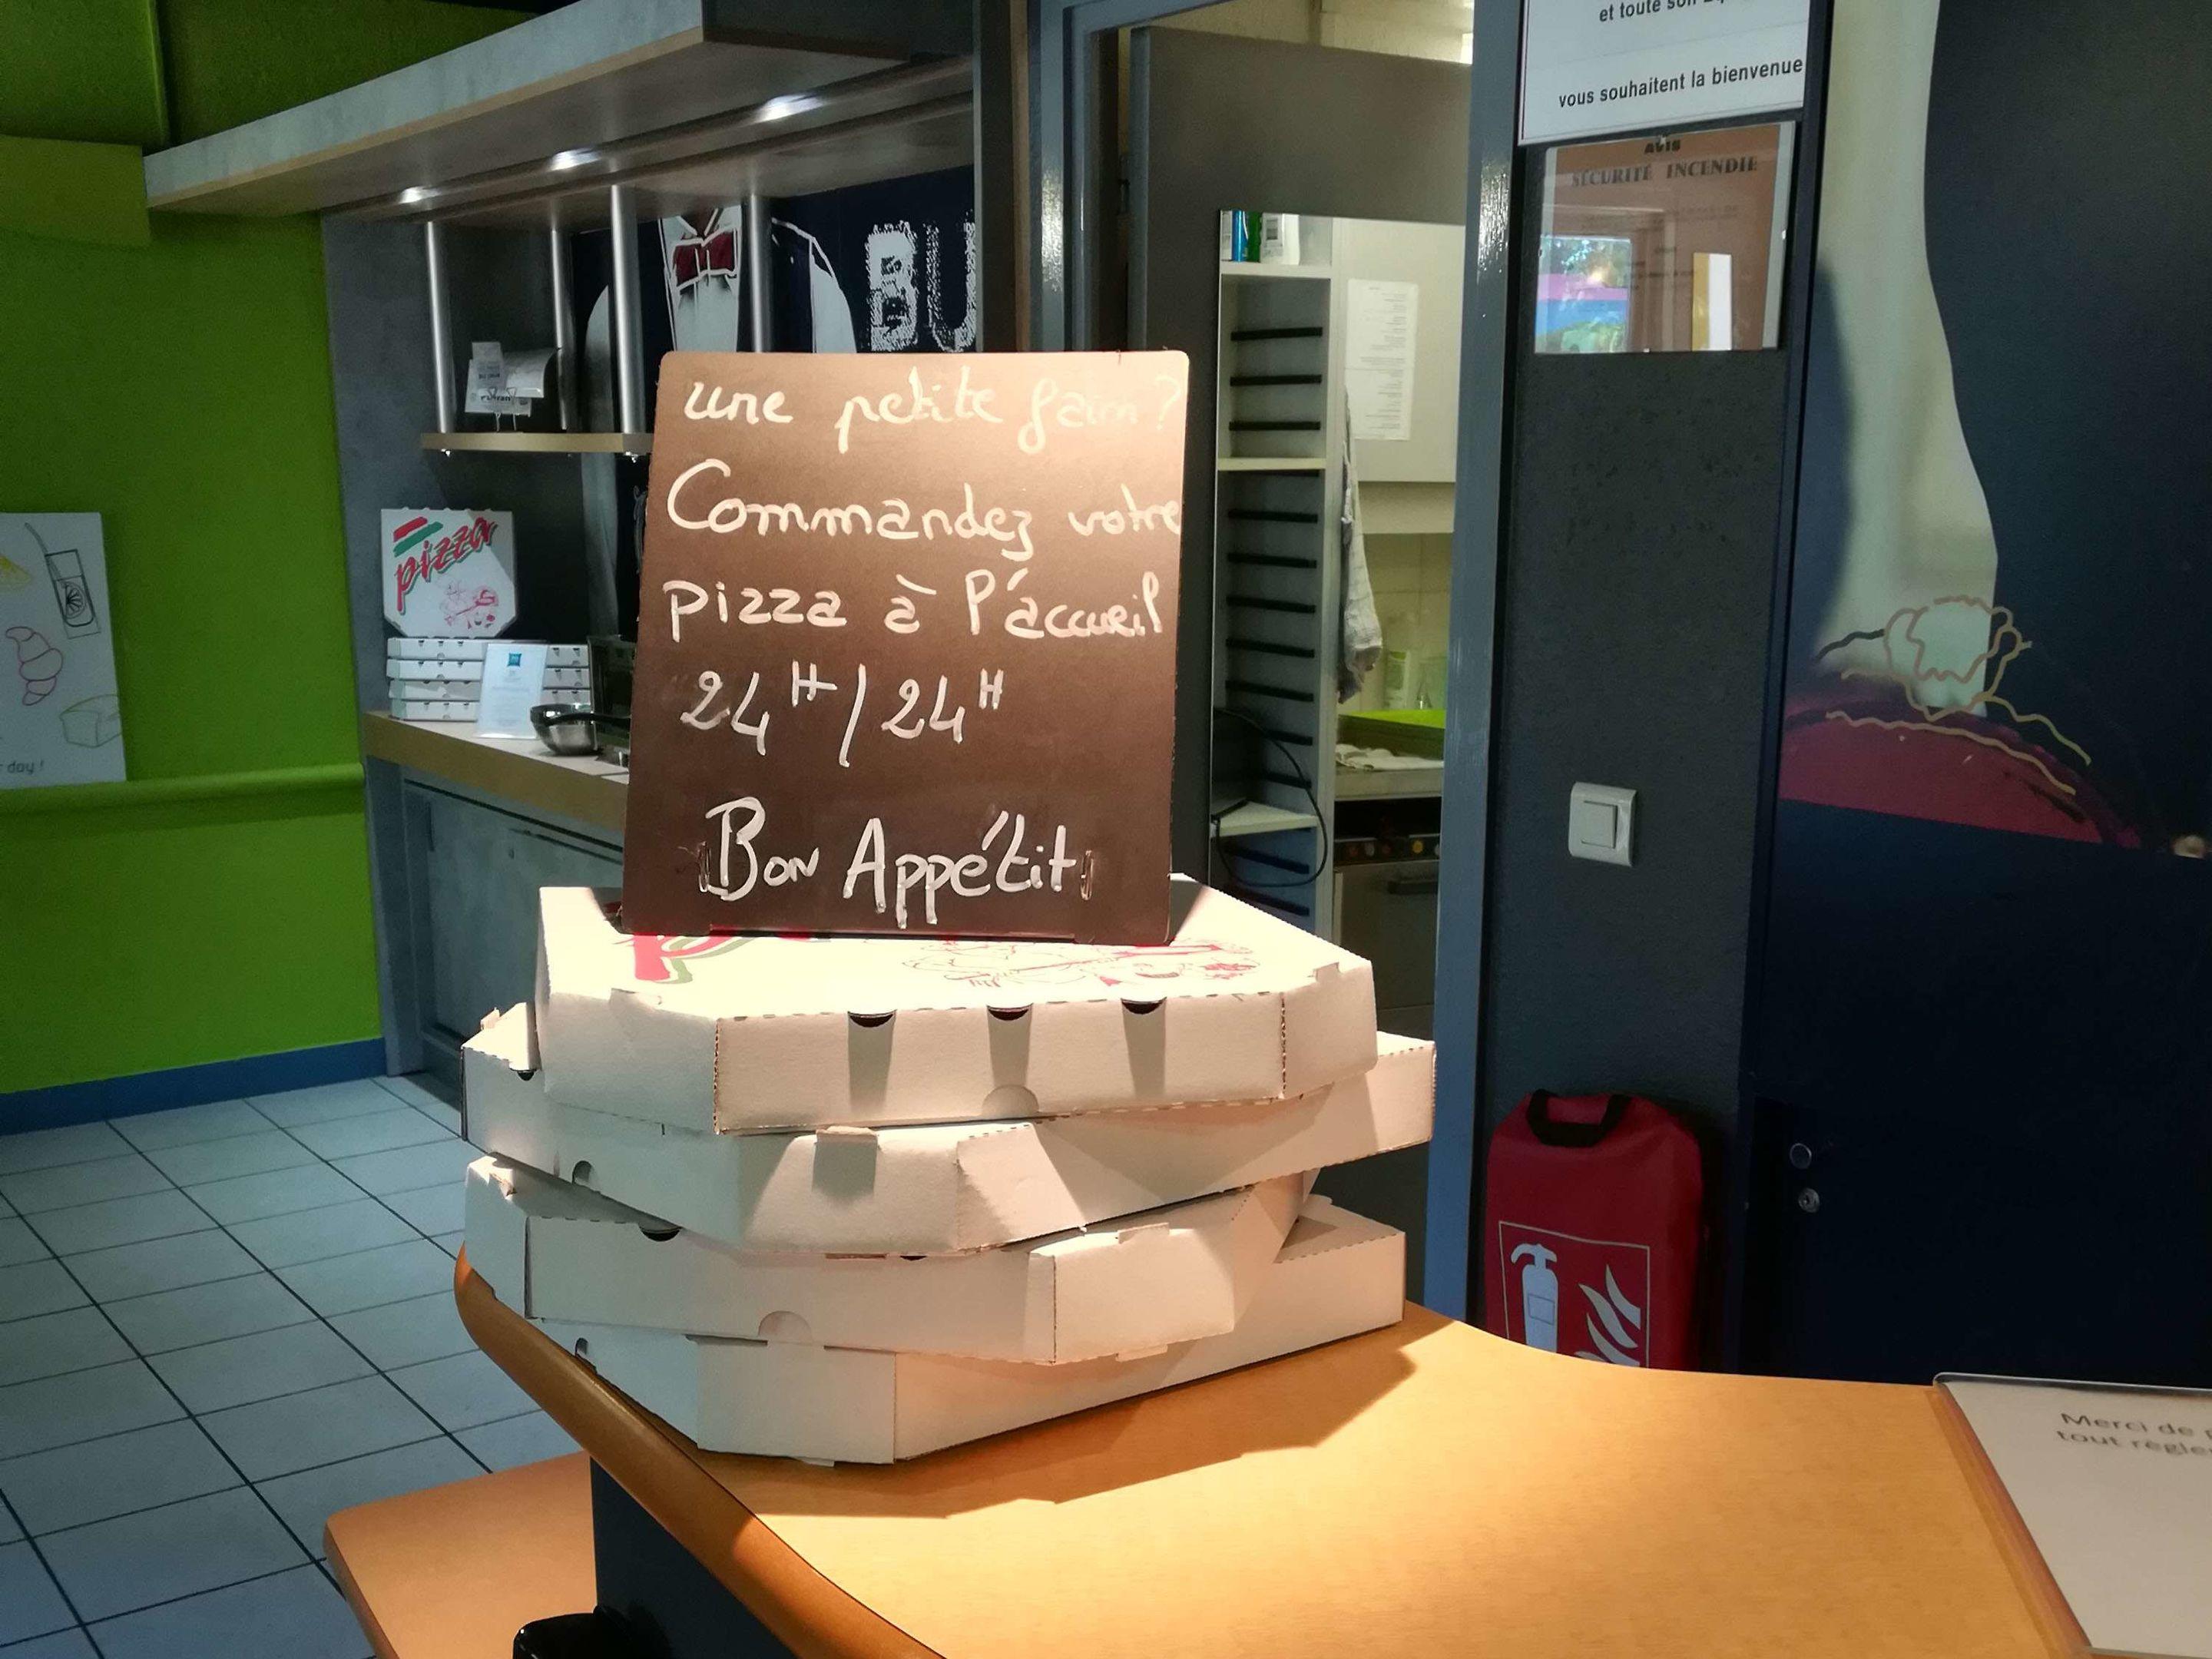 et toute son
vous souhaitent la bienvenue
AVIS
SÉCURITÉ INCENDIE
BU
une petite faim?
Commandez votre
pizza à l'accueil
24H/24H
Bon Appétit
pizza
day !
Merci de
tout règle